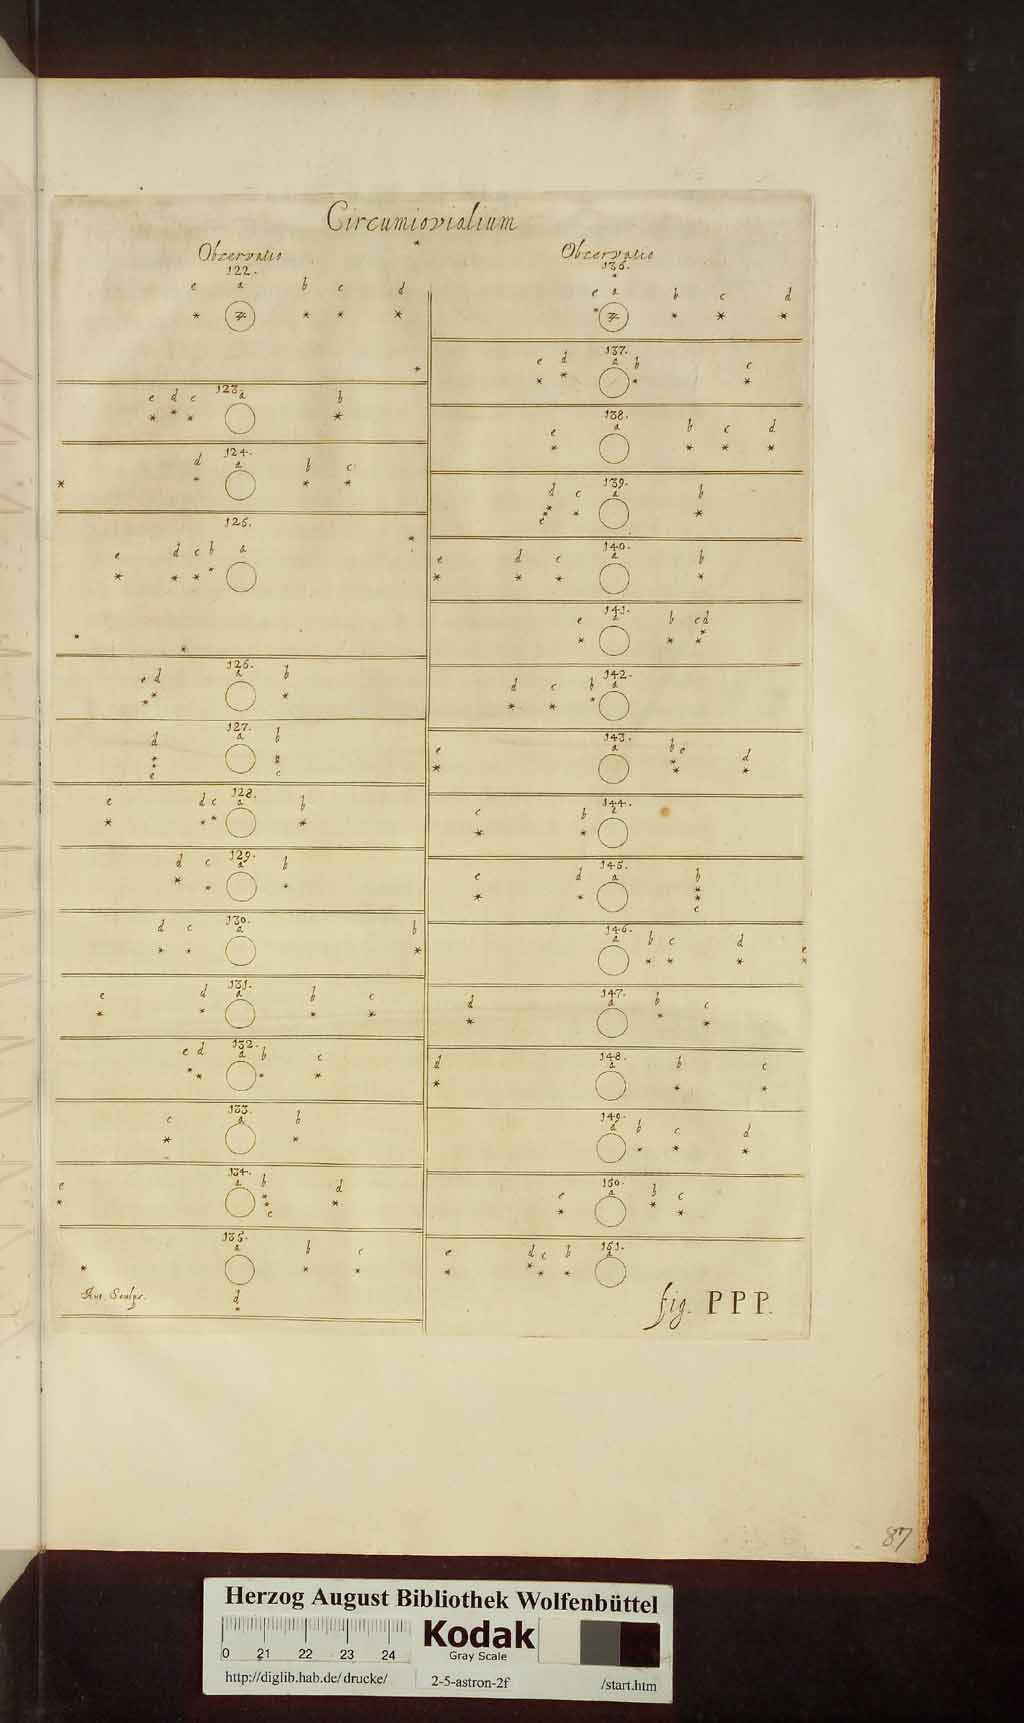 Circumiovialium
Observatio
122.
e a b c d
123.
e d c a b
124.
d a b c
125.
e d c b a
126.
e d a b
127.
d a b
e c
128.
e d c a b
129.
d c a b
130.
d c a b
131.
e d a b c
132.
e d a b c
133.
c a b
134.
e a b d
c
135.
a b c
d
Aut. Sculps.
Observatio
136.
e a b c d
137.
e d a b c
138.
e a b c d
139.
d c a b
e
140.
e d c a b
141.
e a b c d
142.
d c b a
143.
e a b c d
144.
c b a
145.
e d a b
c
146.
a b c d e
147.
d a b c
148.
d a b c
149.
a b c d
150.
e a b c
151.
e d c b a
fig. PPP.
87
Herzog August Bibliothek Wolfenbüttel
0 21 22 23 24
Kodak
Gray Scale
http://diglib.hab.de/drucke/ 2-5-astron-2f /start.htm